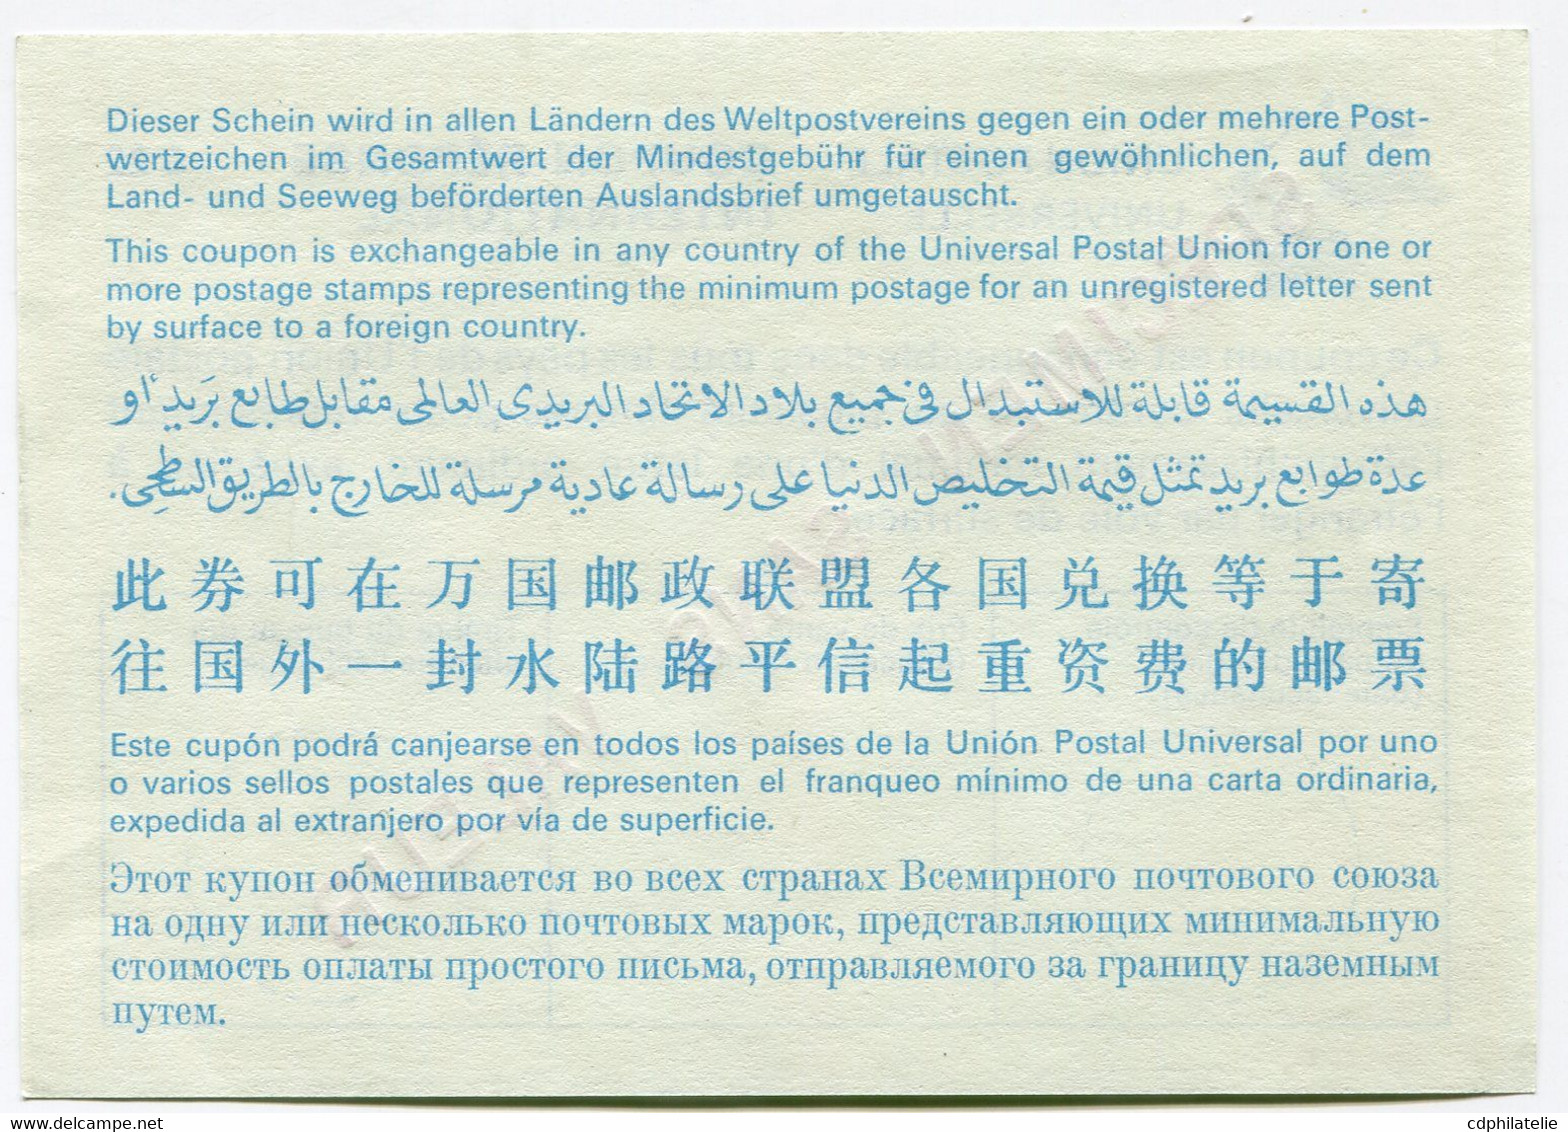 Dieser Schein wird in allen Ländern des Weltpostvereins gegen ein oder mehrere Post-
wertzeichen im Gesamtwert der Mindestgebühr für einen gewöhnlichen, auf dem
Land- und Seeweg beförderten Auslandsbrief umgetauscht.
This coupon is exchangeable in any country of the Universal Postal Union for one or
more postage stamps representing the minimum postage for an unregistered letter sent
by surface to a foreign country.
هذه القسيمة قابلة للاستبدال في جميع بلاد الاتحاد البريدى العالمى مقابل طابع بَريد أو
عدة طوابع بريد تمثل قيمة التخليص الدنيا على رسالة عادية مرسلة للخارج بالطريق السطحِى.
此券可在万国邮政联盟各国兑换等于寄
往国外一封水陆路平信起重资费的邮票
Este cupón podrá canjearse en todos los países de la Unión Postal Universal por uno
o varios sellos postales que representen el franqueo mínimo de una carta ordinaria,
expedida al extranjero por vía de superficie.
Этот купон обменивается во всех странах Всемирного почтового союза
на одну или несколько почтовых марок, представляющих минимальную
стоимость оплаты простого письма, отправляемого за границу наземным
путем.
www.delcampe.net
cdphilatelie